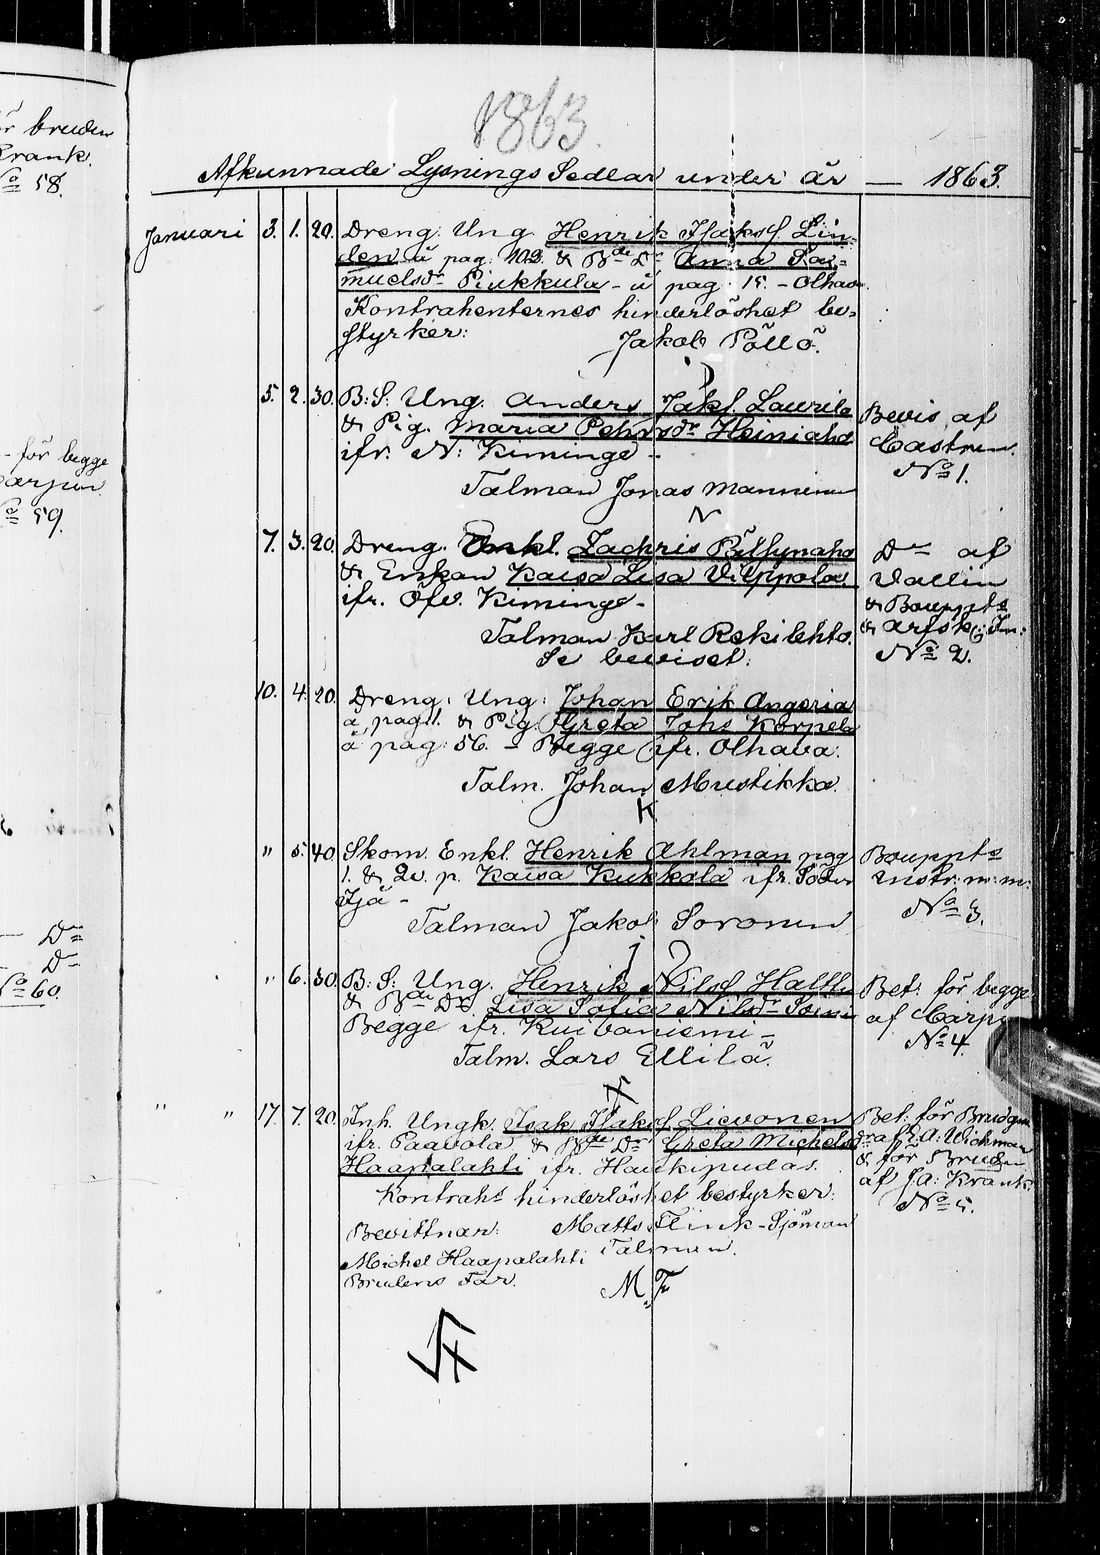 r bruden
Krank.
No 58.
- för begge
arpen
No 59.
Do
Do
No 60.
1863.
Afkunnade Lysnings Sedlar under År — 1863.
Januari 3. 1. 20. Dreng. Ung. Henrik Isaksf. Lin-
den å pag. 103 & Bde Dr Anna Sa-
muelsdr Piukkula - å pag. 15. - Olhava
Kontrahenternes hinderlöshet be-
styrker:
Jakob Pöllö.
5. 2. 30. B: S: Ung. Anders Jakf. Laurila
& Pig. Maria Pehrsdr Heiniaho
ifr. N: Kiminge -
Talman Jonas Manninen
Bevis af
Castren.
No 1.
7. 3. 20. Dreng. Enkl. Zachris Pältsynaho
& Enkan Kaisa Lisa Vilppola.
ifr. Öfv. Kiminge -
Talman Karl Rekilehto.
Se beviset.
Do af
Vallin
& Bouppts
& arfsk: In:
No 2.
10. 4. 20. Dreng: Ung: Johan Erik Angeria
å pag 1. & Pig. Greta Johs Korpela
å pag: 56. - Begge ifr. Olhava.
Talm. Johan Mustikka.
K
" 5. 40. Skom. Enkl. Henrik Ahlman pag
1. & Qv. p. Kaisa Kukkola ifr. Söder
Ijå -
Talman Jakob Soronen
Bouppts
instr: m: m:
No 3.
" 6. 30. B: S: Ung. Henrik Nilsf Halttu
& Bde Dr Lisa Sofia Nilsdr Soini
Begge ifr. Kuivaniemi -
Talm. Lars Ellilä.
Bet: för begge
af Carpe
No 4.
" " 17. 7. 20. Inh. Ungk. Isak Isaksf Lievonen
ifr. Paavola & Bde Dr Greta Michelsdr
Haapalahti ifr. Haukipudas.
Kontrahs hinderlöshet bestyrker:
Bevittnar: Matts Flink - Sjöman
Michel Haapalahti Talman.
Brudens Far.
M F
Bet: för Brudgum
af E. A: Wichman
& för Bruden
af J. A: Krank.
No 5.